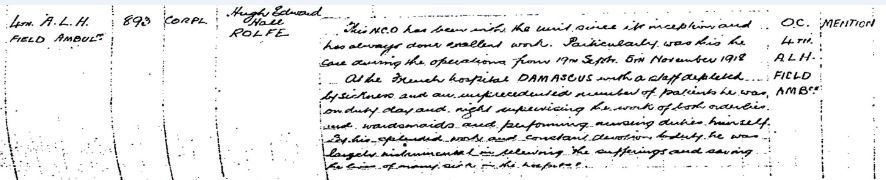 4TH. A.L.H. FIELD AMBULCE
893
CORPL
Hugh Edward Hall ROLFE
This N.C.O has been with the unit since its inception and
has always done excellent work. Particularly was this the
case during the operations from 19TH Septr. 5TH November 1918
At the French hospital DAMASCUS with a staff depleted
by sickness and an unprecedented number of patients he was
on duty day and night supervising the work of both orderlies
and wardsmaids and performing nursing duties himself.
By his splendid work and constant devotion to duty he was
largely instrumental in relieving the sufferings and saving
the lives of many sick in the hospital.
O.C. 4TH. A.L.H. FIELD AMBCE
MENTION